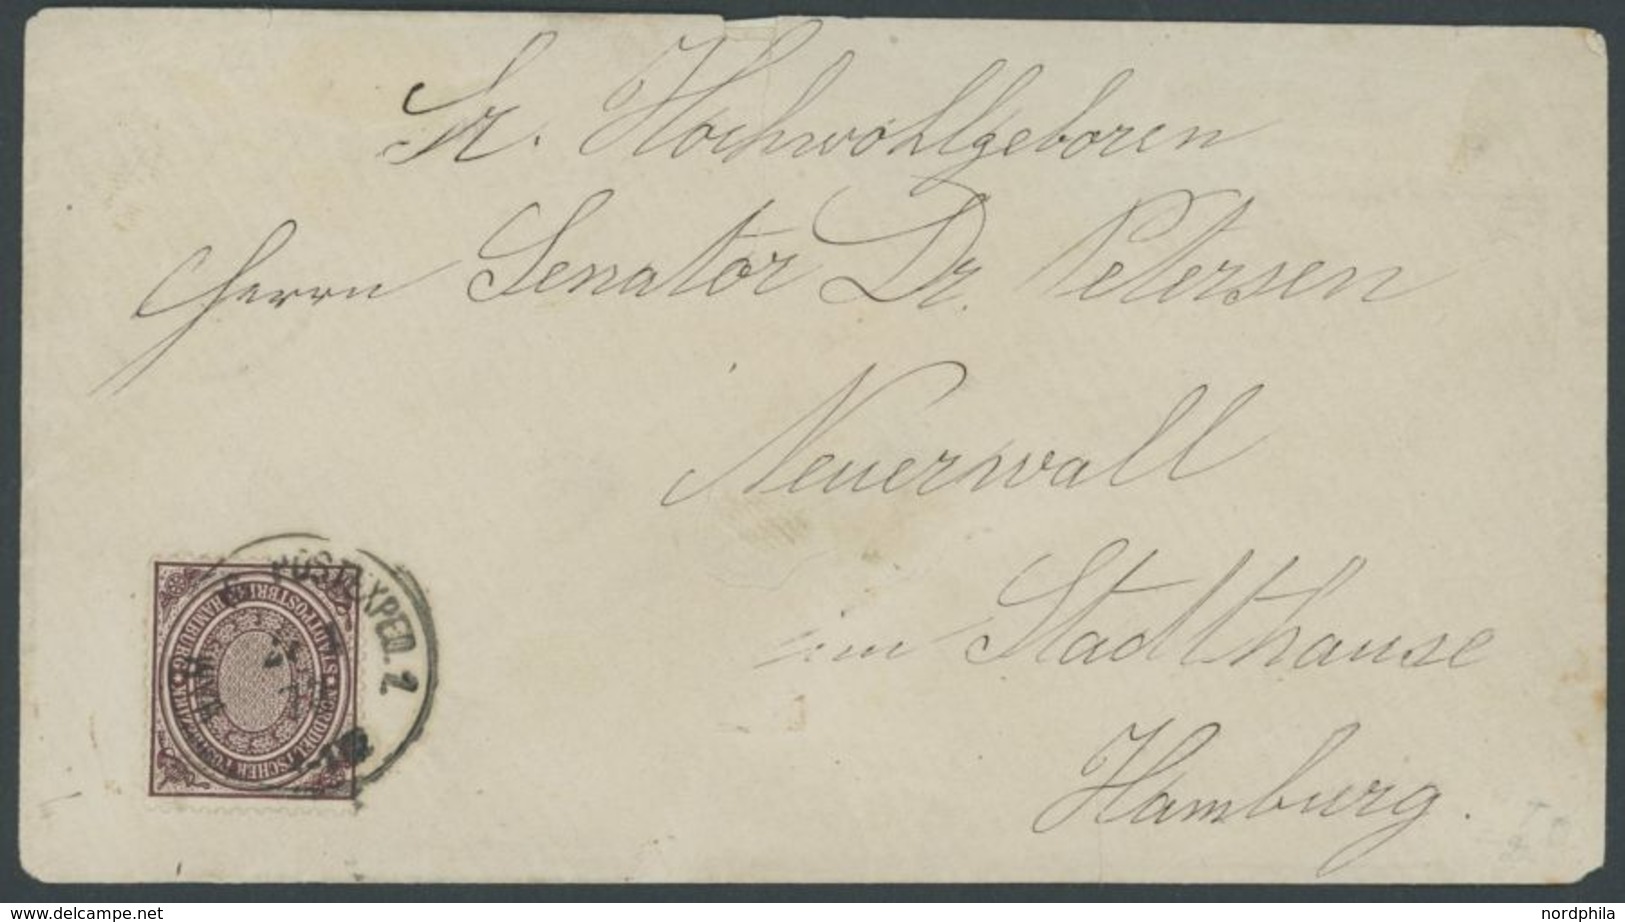 Sr. Hochwohlgeboren
Herrn Senator Dr. Petersen
Neuerwall
im Stadthause
Hamburg.
POSTEXPED. 2
NORDDEUTSCHER POSTBEZIRK
STADTPOSTBRIEF HAMBURG
www.delcampe.net
nordphila